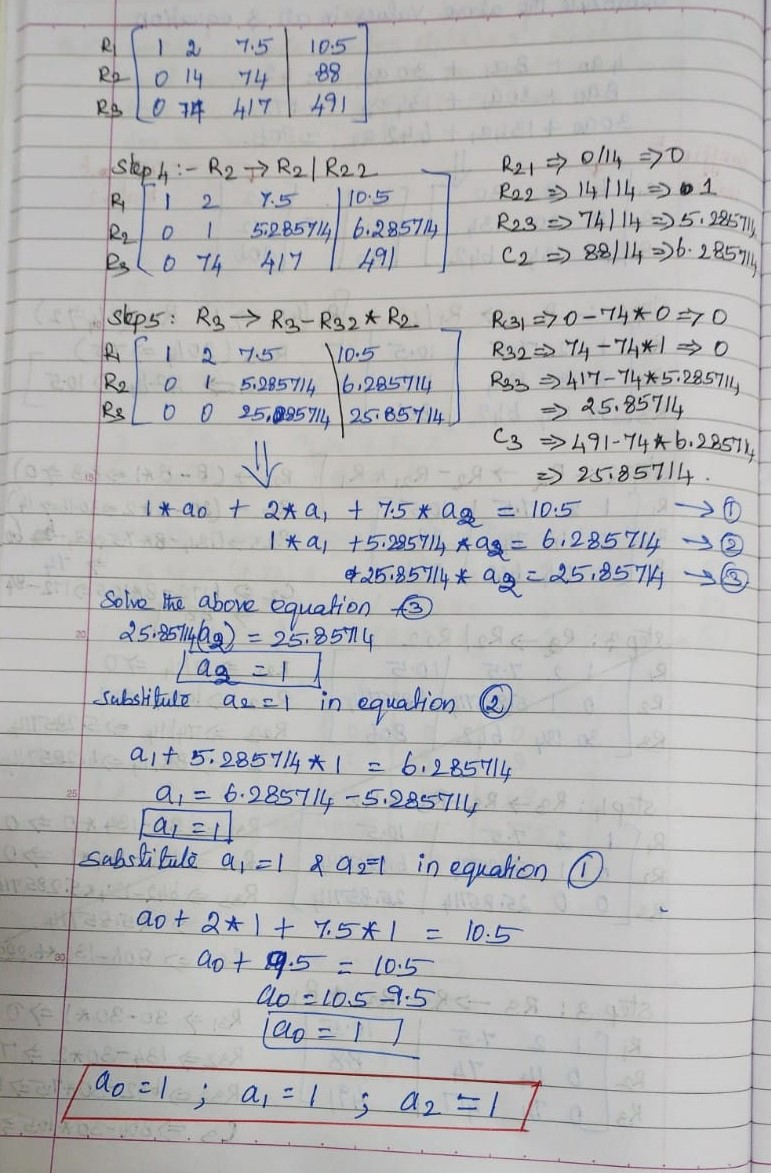 R1 [ 1 2 7.5 | 10.5 ]
R2 [ 0 14 74 | 88 ]
R3 [ 0 74 417 | 491 ]
Step4 :- R2 → R2 | R22
R1 [ 1 2 7.5 | 10.5 ]
R2 [ 0 1 5.285714 | 6.285714 ]
R3 [ 0 74 417 | 491 ]
R21 ⇒ 0/14 ⇒ 0
R22 ⇒ 14/14 ⇒ 1
R23 ⇒ 74/14 ⇒ 5.285714
C2 ⇒ 88/14 ⇒ 6.285714
Step5 : R3 → R3-R32*R2
R1 [ 1 2 7.5 | 10.5 ]
R2 [ 0 1 5.285714 | 6.285714 ]
R3 [ 0 0 25.85714 | 25.85714 ]
R31 ⇒ 0-74*0 ⇒ 0
R32 ⇒ 74-74*1 ⇒ 0
R33 ⇒ 417-74*5.285714
⇒ 25.85714
C3 ⇒ 491-74*6.285714
⇒ 25.85714.
⇓
1*a0 + 2*a1 + 7.5*a2 = 10.5 → ①
1*a1 + 5.285714*a2 = 6.285714 → ②
25.85714* a2 = 25.85714 → ③
Solve the above equation ③
25.85714(a2) = 25.85714
a2 = 1
Substitute a2=1 in equation ②
a1 + 5.285714*1 = 6.285714
a1 = 6.285714-5.285714
a1 = 1
Substitute a1=1 & a2=1 in equation ①
a0 + 2*1 + 7.5*1 = 10.5
a0 + 9.5 = 10.5
a0 = 10.5-9.5
a0 = 1
a0 = 1 ; a1 = 1 ; a2 = 1
20
25
30